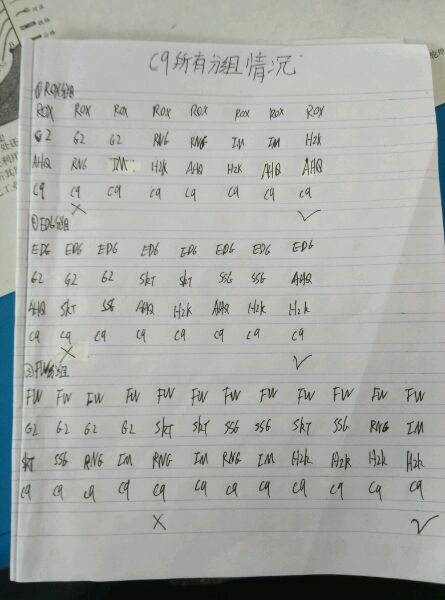 C9所有分组情况
①ROX分组
ROX ROX ROX ROX ROX ROX ROX ROX
G2 G2 G2 RNG RNG IM IM H2k
AHQ RNG IM H2k AHQ H2k AHQ AHQ
C9 C9 C9 C9 C9 C9 C9 C9
②EDG分组
EDG EDG EDG EDG EDG EDG EDG EDG
G2 G2 G2 SKT SKT SSG SSG AHQ
AHQ SKT SSG AHQ H2k AHQ H2k H2k
C9 C9 C9 C9 C9 C9 C9 C9
③FW分组
FW FW FW FW FW FW FW FW FW FW FW FW
G2 G2 G2 G2 SKT SKT SSG SSG SKT SSG RNG IM
SKT SSG RNG IM RNG IM RNG IM H2k H2k H2k H2k
C9 C9 C9 C9 C9 C9 C9 C9 C9 C9 C9 C9